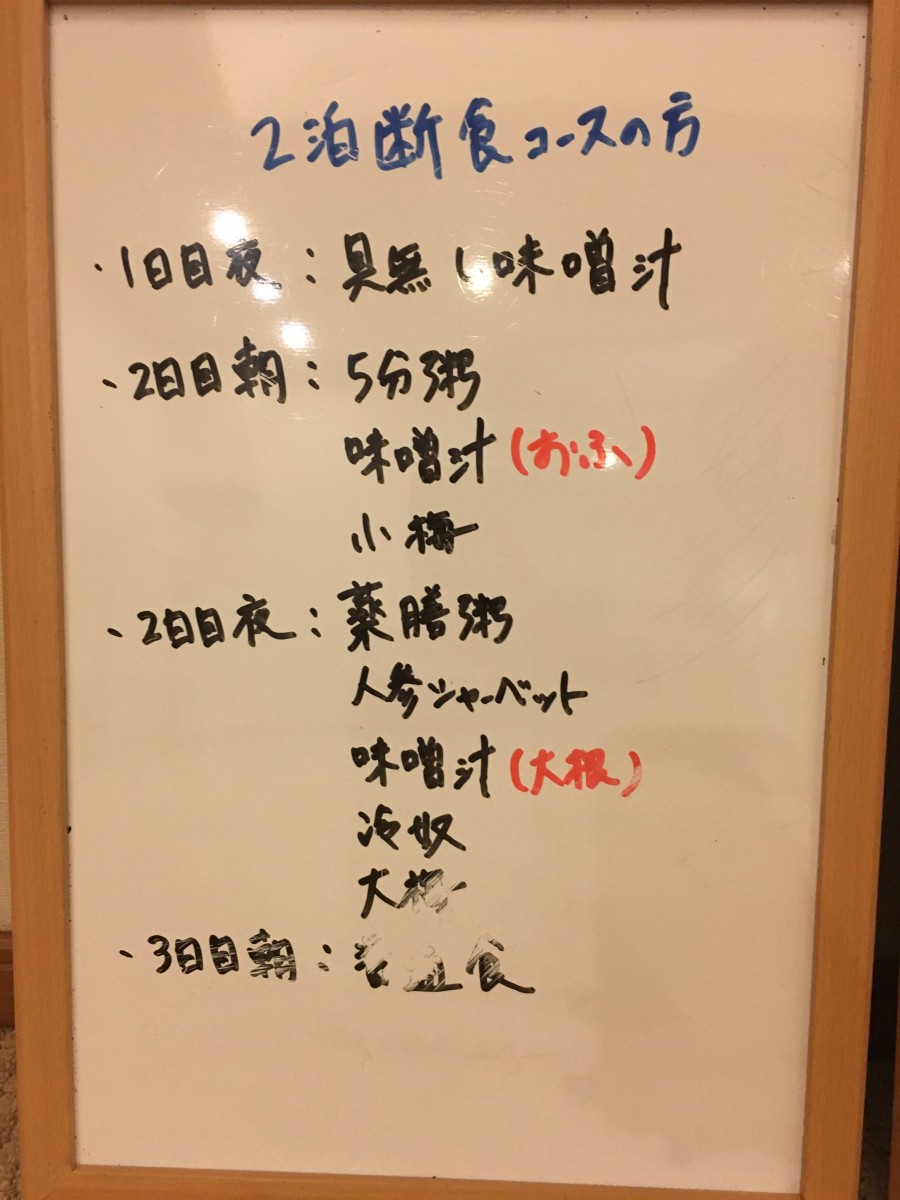 2泊断食コースの方
・1日目夜：具無し味噌汁
・2日目朝：5分粥
味噌汁(おふ)
小梅
・2日目夜：薬膳粥
人参シャーベット
味噌汁(大根)
冷奴
大根
・3日目朝：普通食